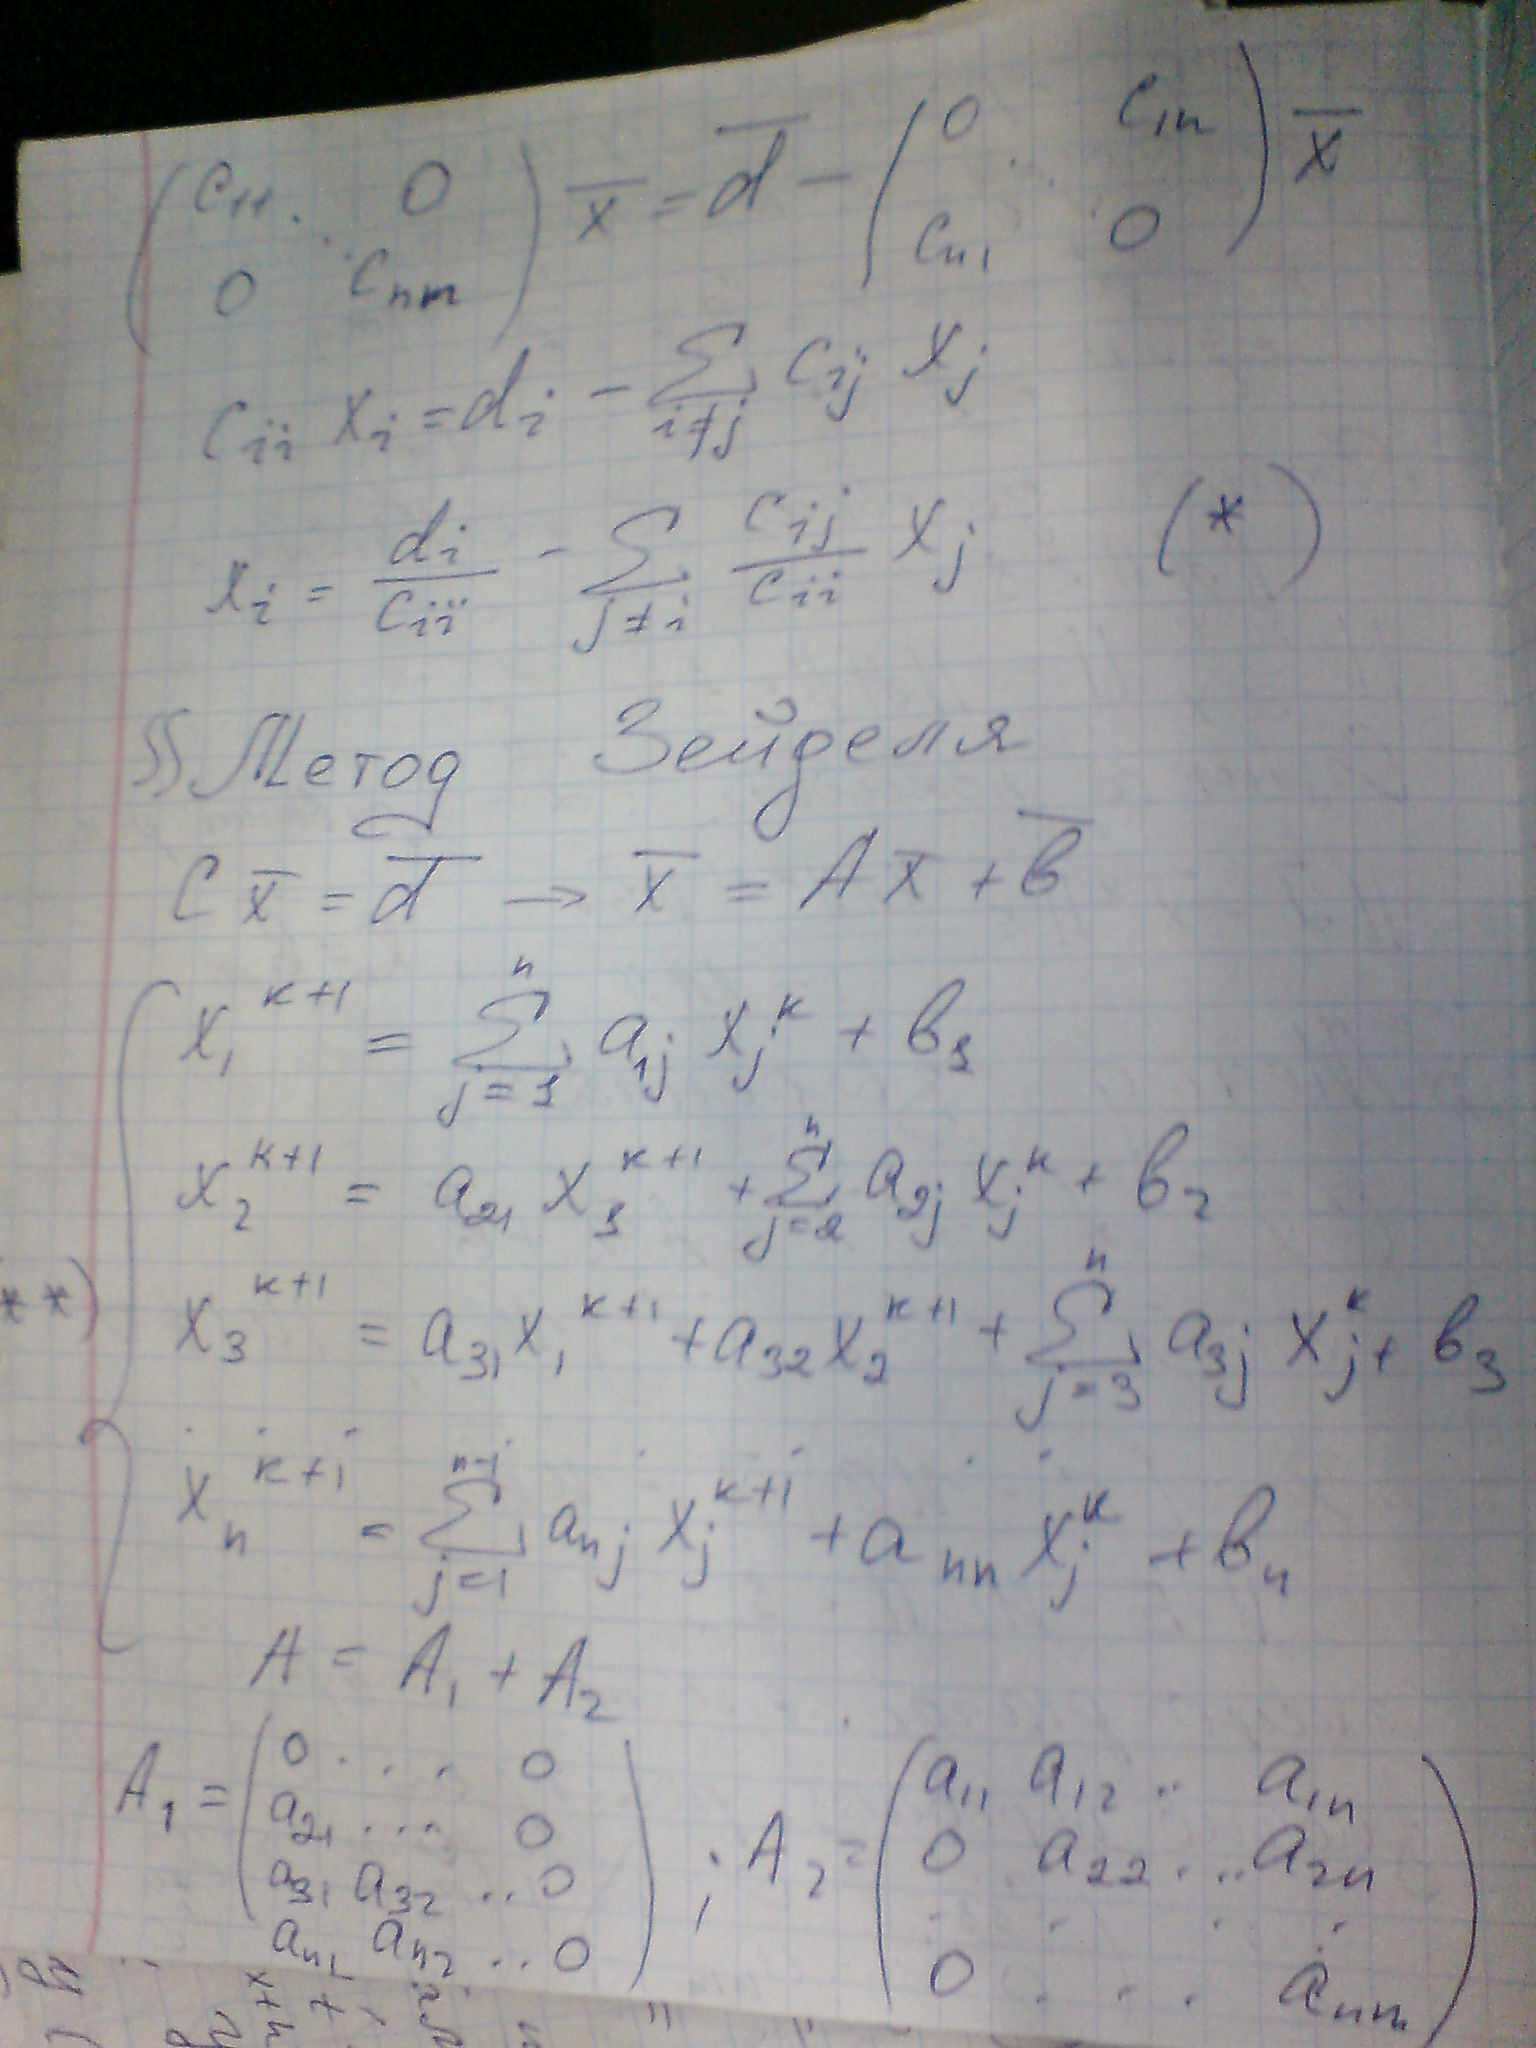 (c₁₁ ⋱ 0 / 0 cₙₙ) x̄ = d̄ − (0 ⋱ c₁ₙ / cₙ₁ 0) x̄
cᵢᵢ xᵢ = dᵢ − Σ_{i≠j} cᵢⱼ xⱼ
xᵢ = dᵢ/cᵢᵢ − Σ_{j≠i} cᵢⱼ/cᵢᵢ xⱼ (*)
§§ Метод Зейделя
C x̄ = d̄ → x̄ = A x̄ + b̄
x₁^{k+1} = Σ_{j=1}^{n} a₁ⱼ xⱼ^k + b₁
x₂^{k+1} = a₂₁ x₁^{k+1} + Σ_{j=2}^{n} a₂ⱼ xⱼ^k + b₂
**) x₃^{k+1} = a₃₁ x₁^{k+1} + a₃₂ x₂^{k+1} + Σ_{j=3}^{n} a₃ⱼ xⱼ^k + b₃
. . . . . . .
xₙ^{k+1} = Σ_{j=1}^{n-1} aₙⱼ xⱼ^{k+1} + aₙₙ xⱼ^k + bₙ
A = A₁ + A₂
A₁ = (0 ... 0 / a₂₁ ... 0 / a₃₁ a₃₂ .. 0 / aₙ₁ aₙ₂ .. 0) ; A₂ = (a₁₁ a₁₂ .. a₁ₙ / 0 a₂₂ ... a₂ₙ / . . . . / 0 . . . aₙₙ)